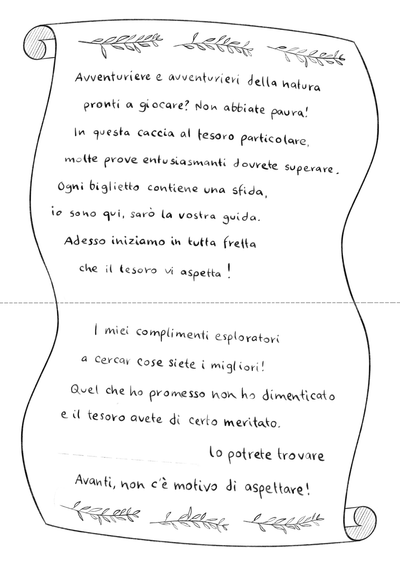 Avventuriere e avventurieri della natura
pronti a giocare? Non abbiate paura!
In questa caccia al tesoro particolare,
molte prove entusiasmanti dovrete superare.
Ogni biglietto contiene una sfida,
io sono qui, sarò la vostra guida.
Adesso iniziamo in tutta fretta
che il tesoro vi aspetta!
I miei complimenti esploratori
a cercar cose siete i migliori!
Quel che ho promesso non ho dimenticato
e il tesoro avete di certo meritato.
lo potrete trovare
Avanti, non c'è motivo di aspettare!